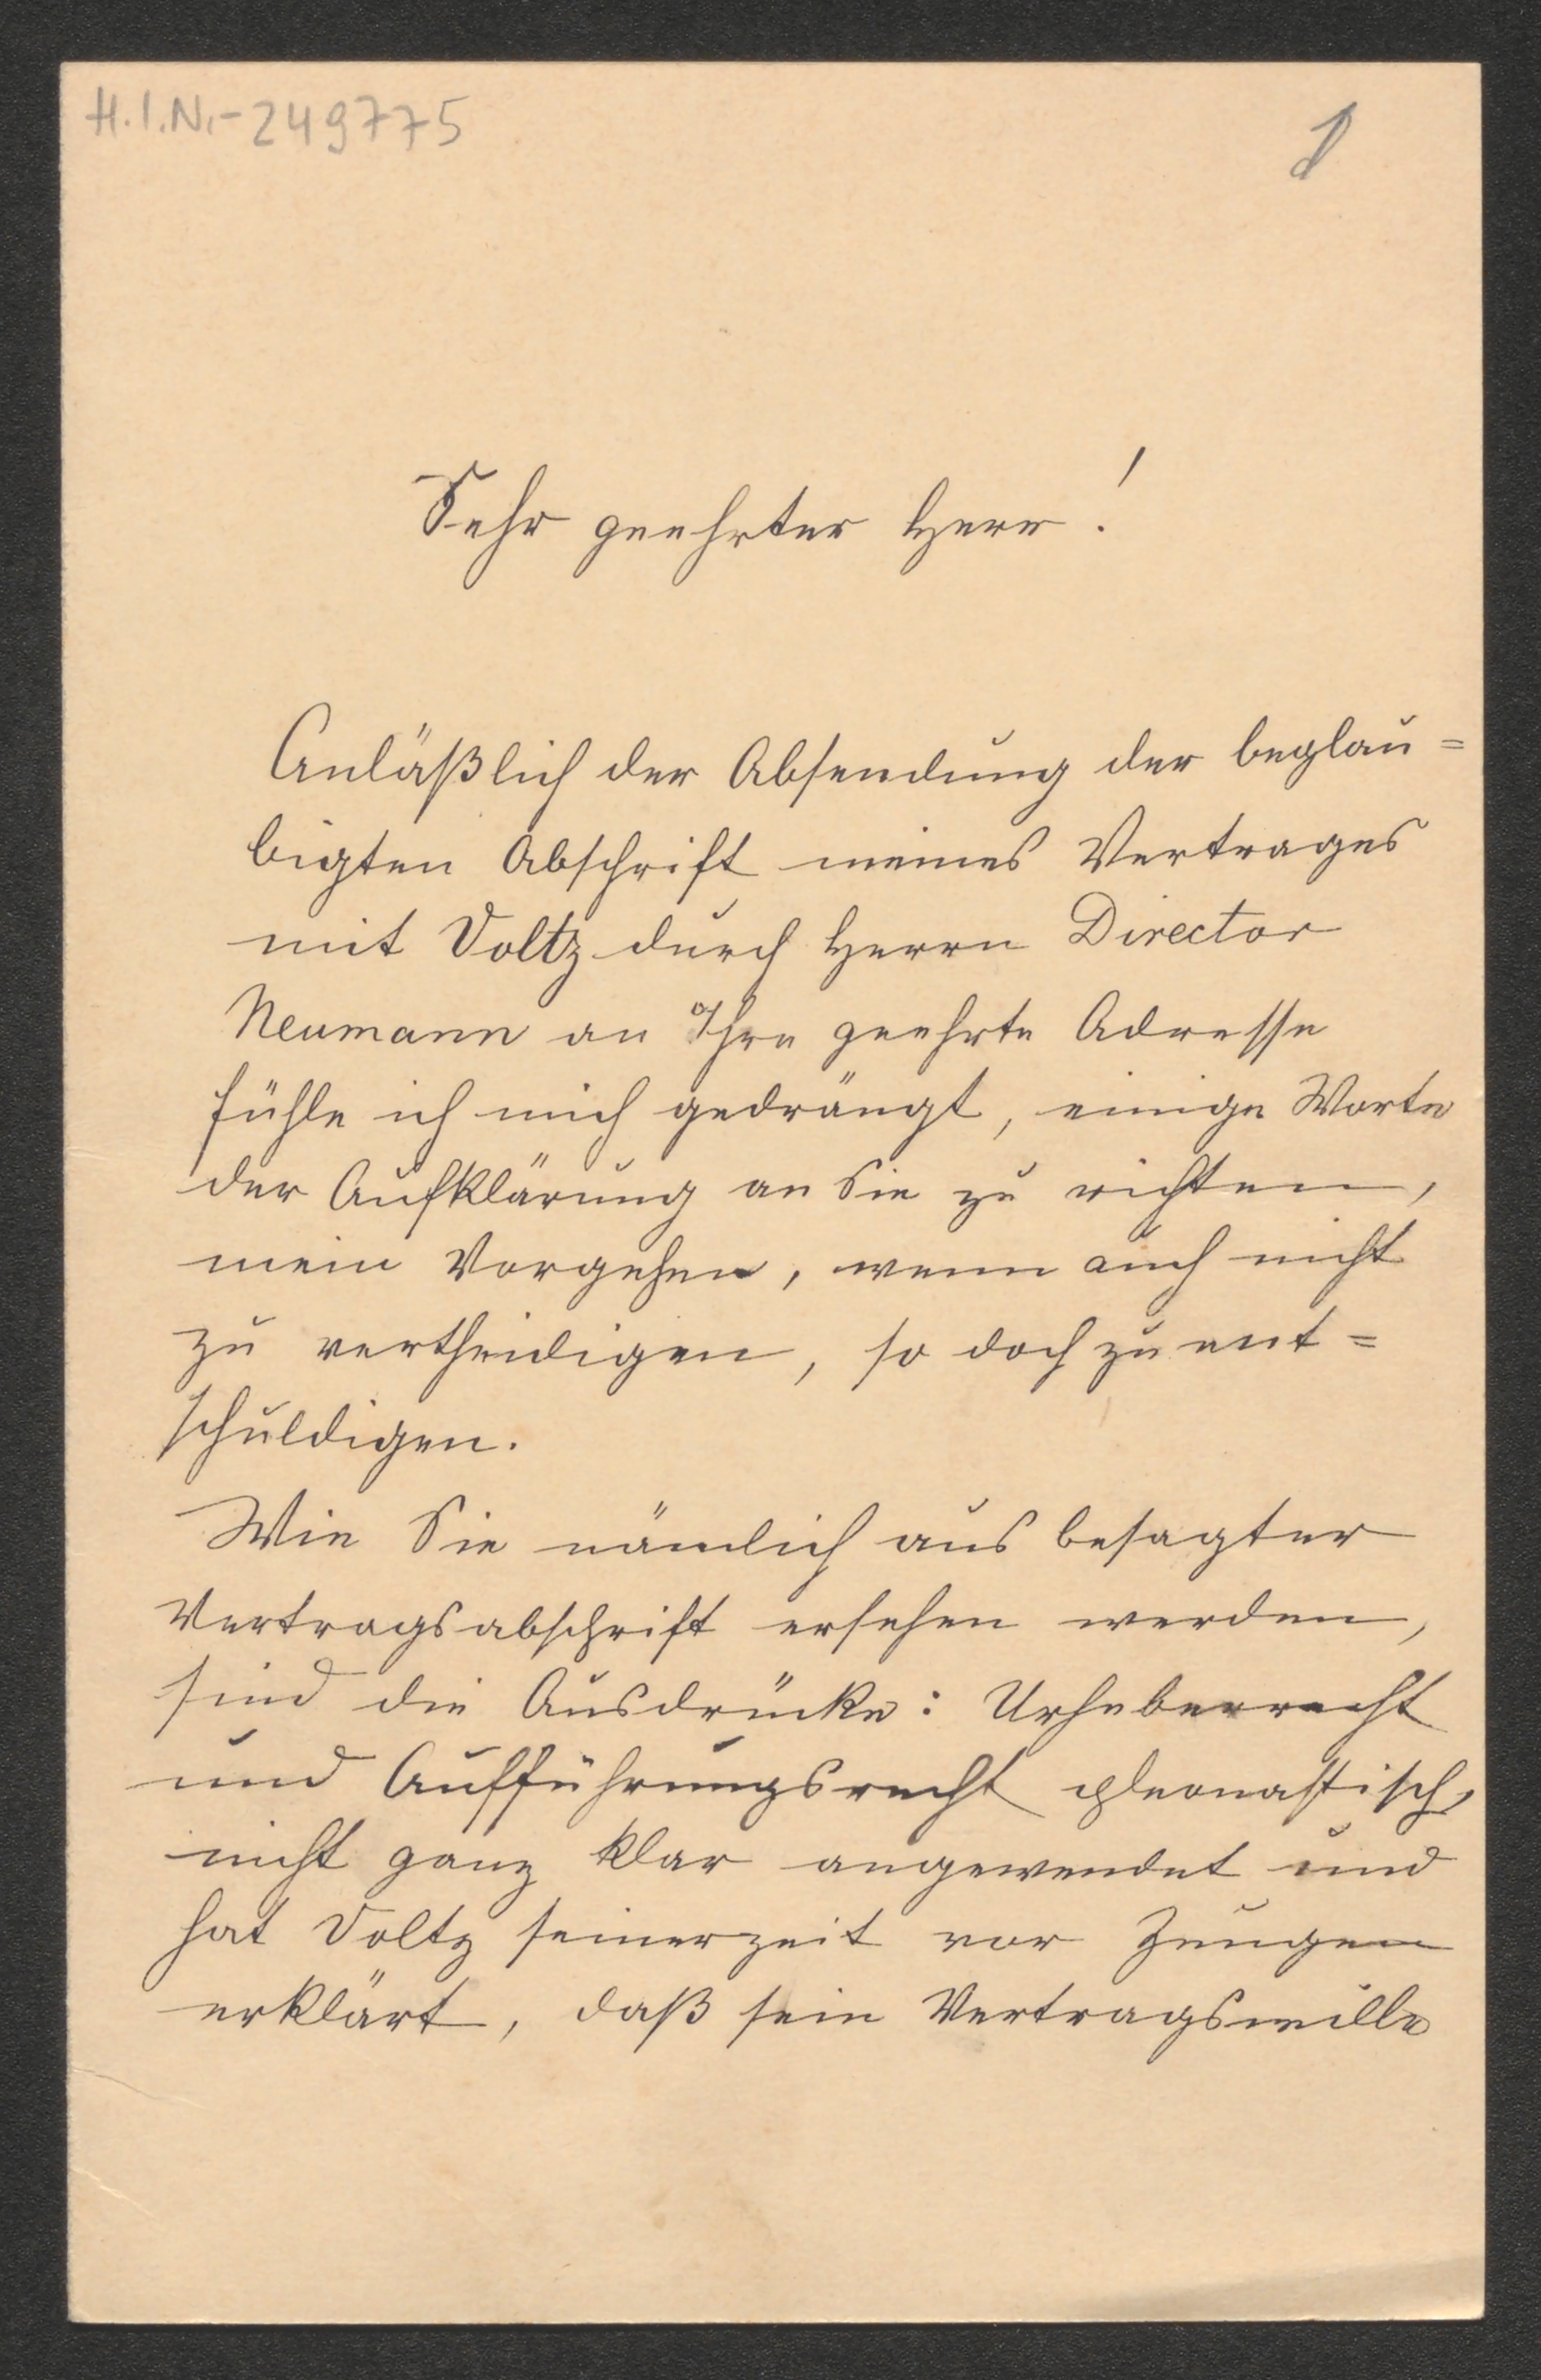 H.I.N.-249775
1
Sehr geehrter Herr!
Anläßlich der Absendung der beglau=
bigten Abschrift meines Vertrages
mit Voltz durch Herrn Director
Neumann an Ihre geehrte Adresse
fühle ich mich gedrängt, einige Worte
der Aufklärung an Sie zu richten,
mein Vorgehen, wenn auch nicht
zu vertheidigen, so doch zu ent=
schuldigen.
Wie Sie nämlich aus besagter
Vertragsabschrift ersehen werden,
sind die Ausdrücke: Urheberrecht
und Aufführungsrecht pleonastisch,
nicht ganz klar angewendet und
hat Voltz seinerzeit vor Zeugen
erklärt, daß sein Vertragswille